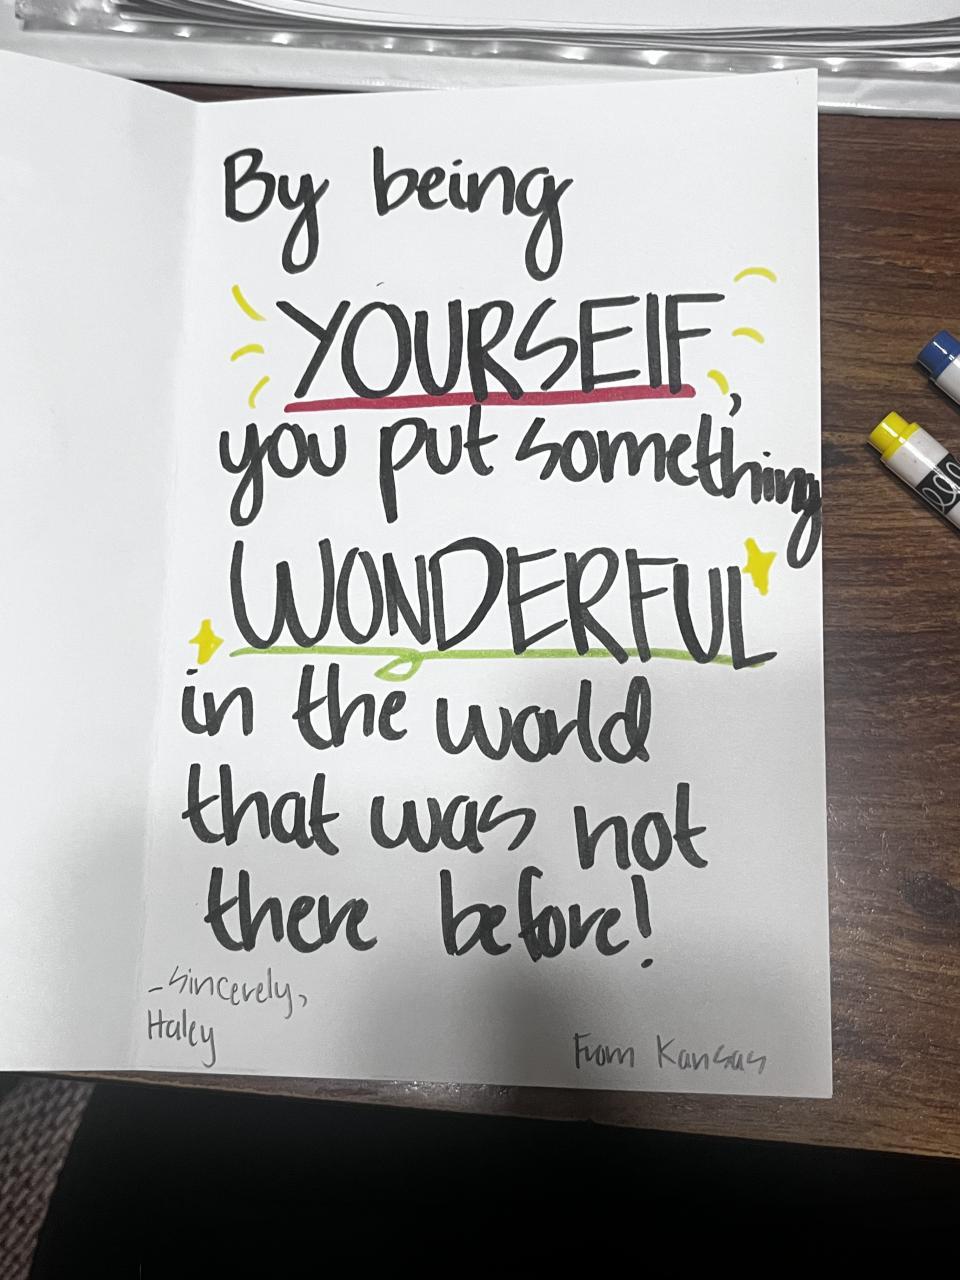 By being
YOURSELF,
you put something
WONDERFUL
in the world
that was not
there before!
-Sincerely,
Haley
From Kansas